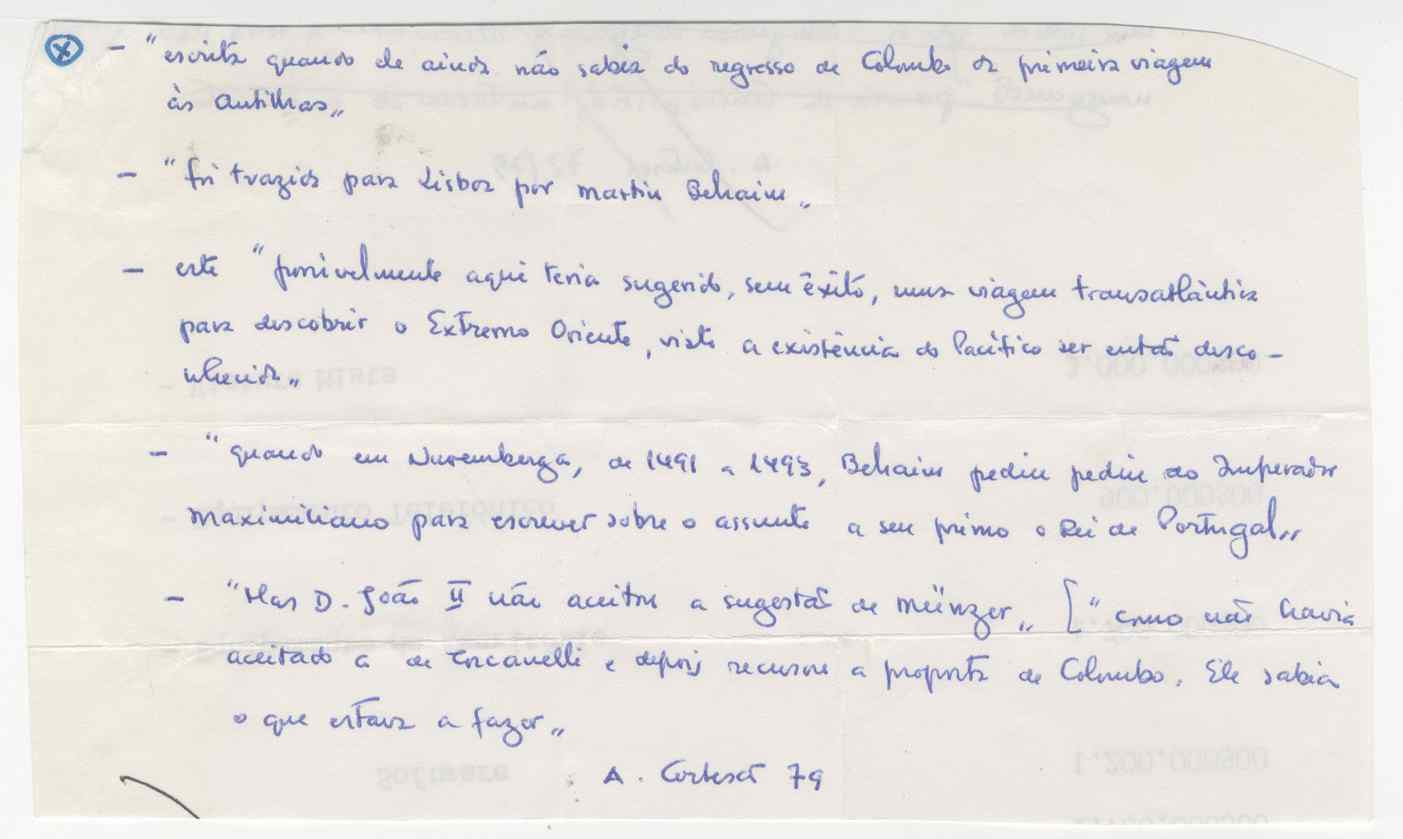 (x) – "escrita quando ele ainda não sabia do regresso de Colombo da primeira viagem
às Antilhas"
– "foi trazida para Lisboa por Martin Behaim"
– este "possivelmente aqui teria sugerido, sem êxito, uma viagem transatlântica
para descobrir o Extremo Oriente, visto a existência do Pacífico ser então desco-
nhecida"
– "quando em Nuremberga, de 1491 a 1493, Behaim pediu pediu ao Imperador
Maximiliano para escrever sobre o assunto a seu primo o Rei de Portugal"
– "Mas D. João II não aceitou a sugestão de Münzer" ["como não havia
aceitado a de Toscanelli e depois recusou a proposta de Colombo. Ele sabia
o que estava a fazer"
A. Cortesão 79